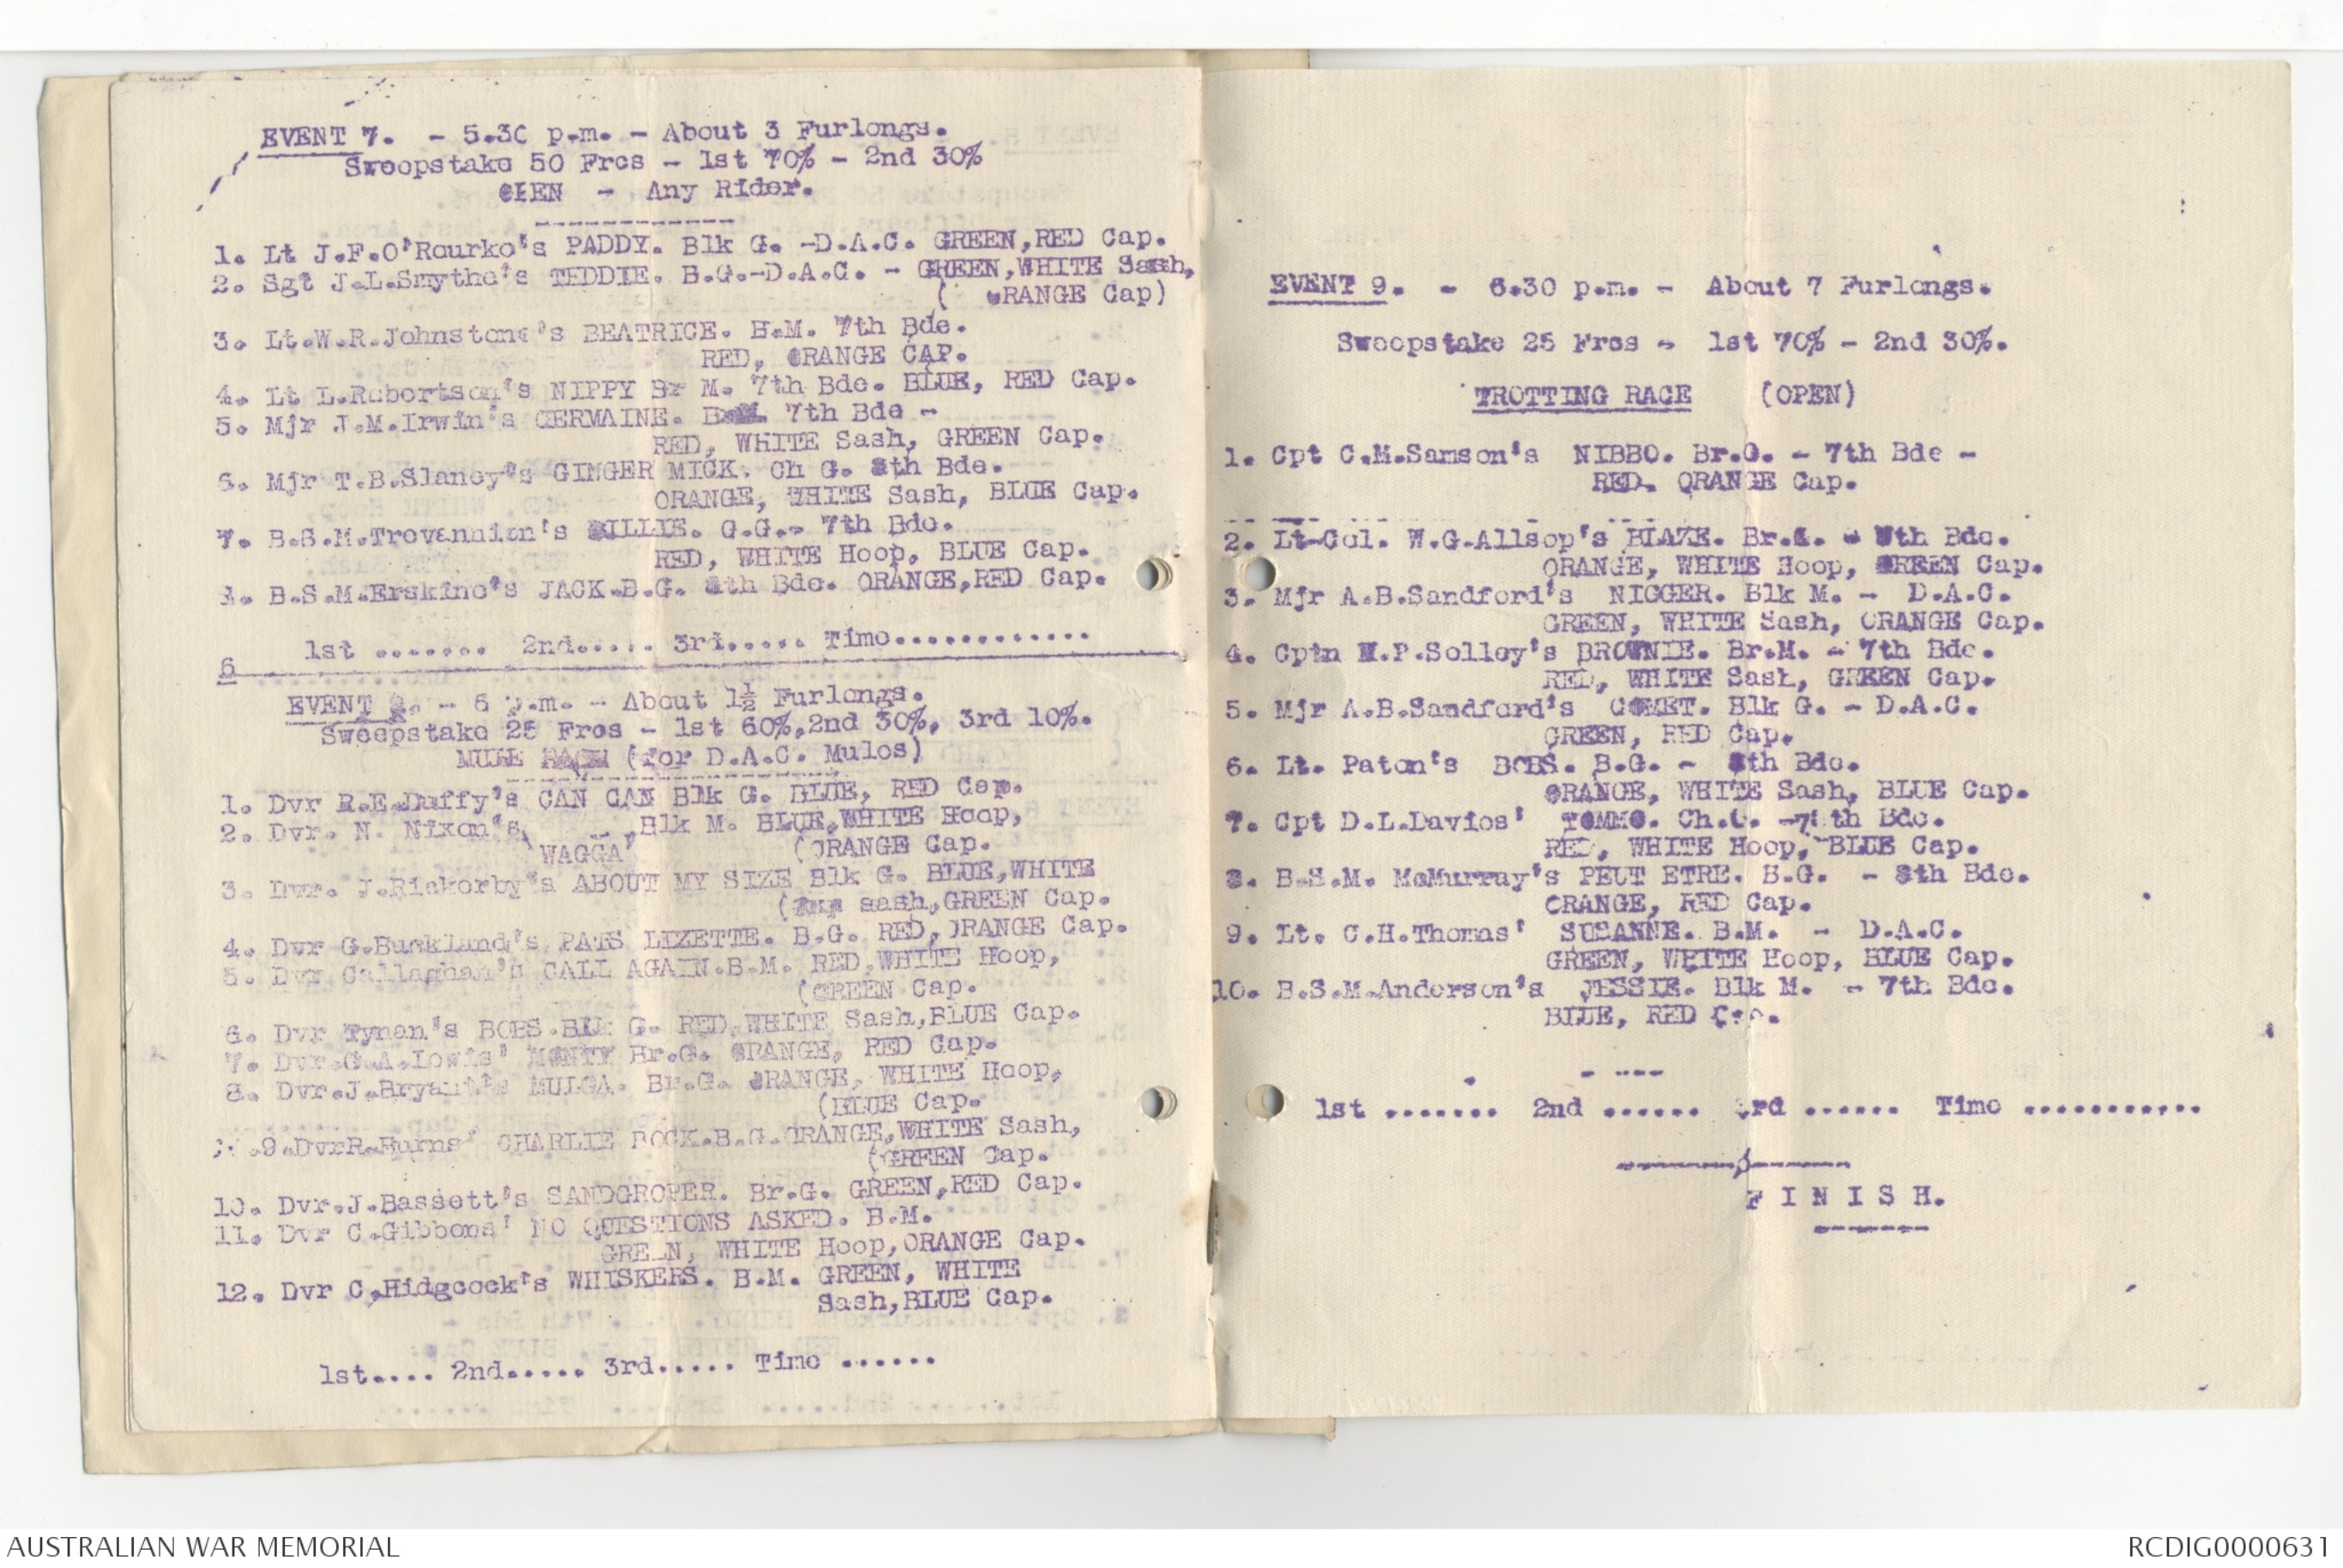 EVENT 7. - 5.30 p.m. - About 3 Furlongs.
Sweepstake 50 Frcs - 1st 70% - 2nd 30%
OPEN - Any Rider.
1. Lt J.F.O'Rourke's PADDY. Blk G. -D.A.C. GREEN,RED Cap.
2. Sgt J.L.Smythe's TEDDIE. B.G.-D.A.C. - GREEN,WHITE Sash,
( ORANGE Cap)
3. Lt.W.R.Johnstone's BEATRICE. B.M. 7th Bde.
RED, ORANGE CAP.
4. Lt L.Robertson's NIPPY Br M. 7th Bde. BLUE, RED Cap.
5. Mjr J.M.Irwin's GERMAINE. 7th Bde -
RED, WHITE Sash, GREEN Cap.
6. Mjr T.B.Slaney's GINGER MICK. Ch G. 8th Bde.
ORANGE, WHITE Sash, BLUE Cap.
7. B.S.M.Trevannion's BILLIE. G.G.- 7th Bde.
RED, WHITE Hoop, BLUE Cap.
8. B.S.M.Erskine's JACK.B.G. 8th Bde. ORANGE,RED Cap.
1st ....... 2nd..... 3rd..... Time............
6
EVENT 8. - 6 p.m. - About 1½ Furlongs.
Sweepstake 25 Frcs - 1st 60%,2nd 30%, 3rd 10%.
MULE RACE (for D.A.C. Mules)
1. Dvr R.E.Duffy's CAN CAN Blk G. BLUE, RED Cap.
2. Dvr. N. Nixon's - ,Blk M. BLUE,WHITE Hoop,
'WAGGA' (ORANGE Cap.
3. Dvr. J.Rickerby's ABOUT MY SIZE Blk G. BLUE,WHITE
( Sash,GREEN Cap.
4. Dvr G.Buckland's PATS LIZETTE. B.G. RED,ORANGE Cap.
5. Dvr Callaghan's CALL AGAIN.B.M. RED,WHITE Hoop,
(GREEN Cap.
6. Dvr Tynan's BOBS.Blk G. RED,WHITE Sash,BLUE Cap.
7. Dvr.G.A.Lewis' MONTY Br.G. ORANGE, RED Cap.
8. Dvr.J.Bryant's MULGA. Br.G. ORANGE, WHITE Hoop,
(BLUE Cap.
9.DvrR.Burns' CHARLIE ROCK.B.G.ORANGE,WHITE Sash,
(GREEN Cap.
10. Dvr.J.Bassett's SANDGROPER. Br.G. GREEN,RED Cap.
11. Dvr C.Gibbons' NO QUESTIONS ASKED. B.M.
GREEN, WHITE Hoop,ORANGE Cap.
12. Dvr C.Hidgcock's WHISKERS. B.M. GREEN, WHITE
Sash,BLUE Cap.
1st.... 2nd..... 3rd..... Time ......
EVENT 9. - 6.30 p.m. - About 7 Furlongs.
Sweepstake 25 Frcs - 1st 70% - 2nd 30%.
TROTTING RACE (OPEN)
1. Cpt C.M.Samson's NIBBO. Br.G. - 7th Bde -
RED. ORANGE Cap.
2. Lt-Col. W.G.Allsop's BLAZE. Br.G. - 8th Bde.
ORANGE, WHITE Hoop, GREEN Cap.
3. Mjr A.B.Sandford's NIGGER. Blk M. - D.A.C.
GREEN, WHITE Sash, ORANGE Cap.
4. Cptn W.P.Solley's BROWNIE. Br.M. - 7th Bde.
RED, WHITE Sash, GREEN Cap.
5. Mjr A.B.Sandford's COMET. Blk G. - D.A.C.
GREEN, RED Cap.
6. Lt. Paton's BOBS. B.G. - 8th Bde.
ORANGE, WHITE Sash, BLUE Cap.
7. Cpt D.L.Davies' TOMMO. Ch.G. -7th Bde.
RED, WHITE Hoop, BLUE Cap.
8. B.S.M. McMurray's PEUT ETRE. B.G. - 8th Bde.
ORANGE, RED Cap.
9. Lt. C.H.Thomas' SUZANNE. B.M. - D.A.C.
GREEN, WHITE Hoop, BLUE Cap.
10. B.S.M.Anderson's JESSIE. Blk M. - 7th Bde.
BLUE, RED Cap.
1st ....... 2nd ...... 3rd ...... Time ...........
F I N I S H.
AUSTRALIAN WAR MEMORIAL
RCDIG0000631